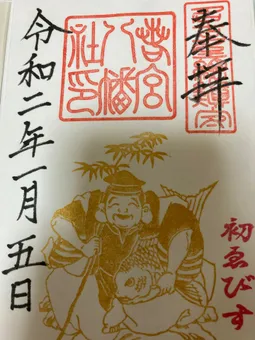 奉拝
若宮
八幡
社印
令和二年一月五日
初ゑびす